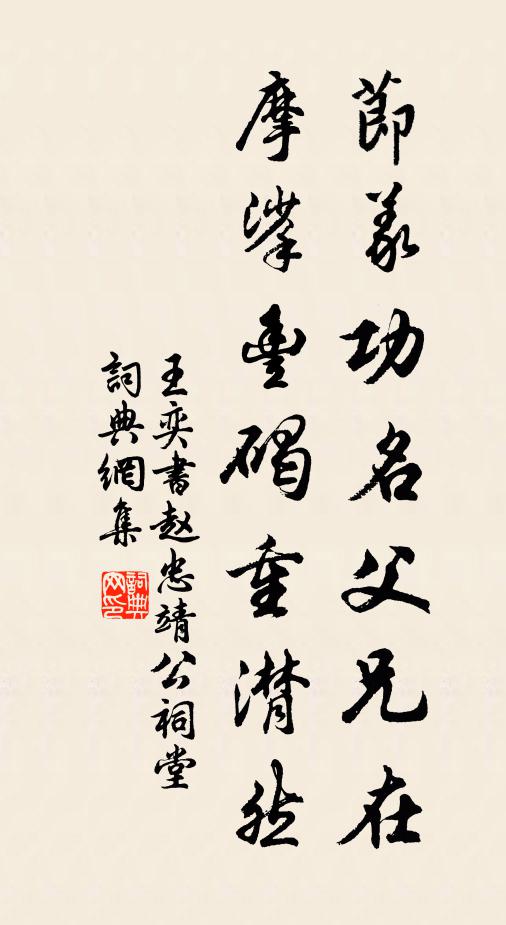 節義功名父兄在
摩挲豐碣重潸然
王奕書赵忠靖公祠堂
詞典網集
詞典网印